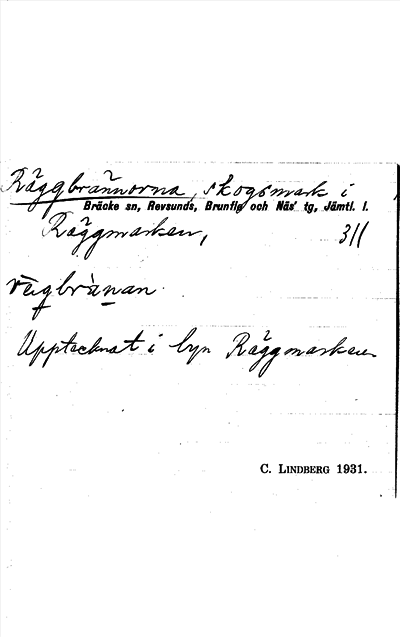 Räggbrännorna, skogsmark i
Bräcke sn, Revsunds, Brunflo och Näs' tg, Jämtl. l.
Räggmarken, 311
Upptecknat i byn Räggmarken
C. LINDBERG 1931.